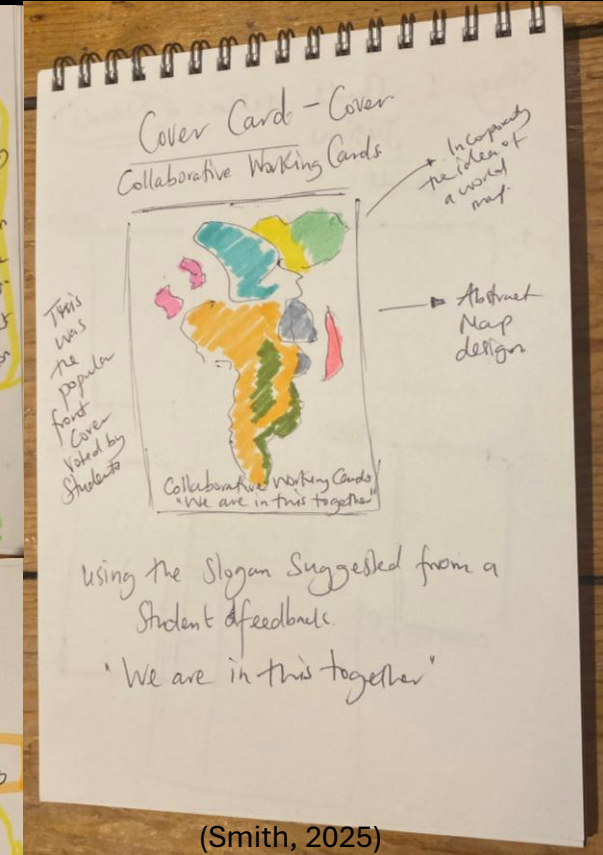 Cover Card - Cover
Collaborative Working Cards
Incorporating
the idea of
a world
map.
Abstract
Map
design
This
was
the
popular
front
Cover
voted by
Students
Collaborative Working Cards
"We are in this together"
using the slogan Suggested from a
Student feedback.
"We are in this together"
(Smith, 2025)